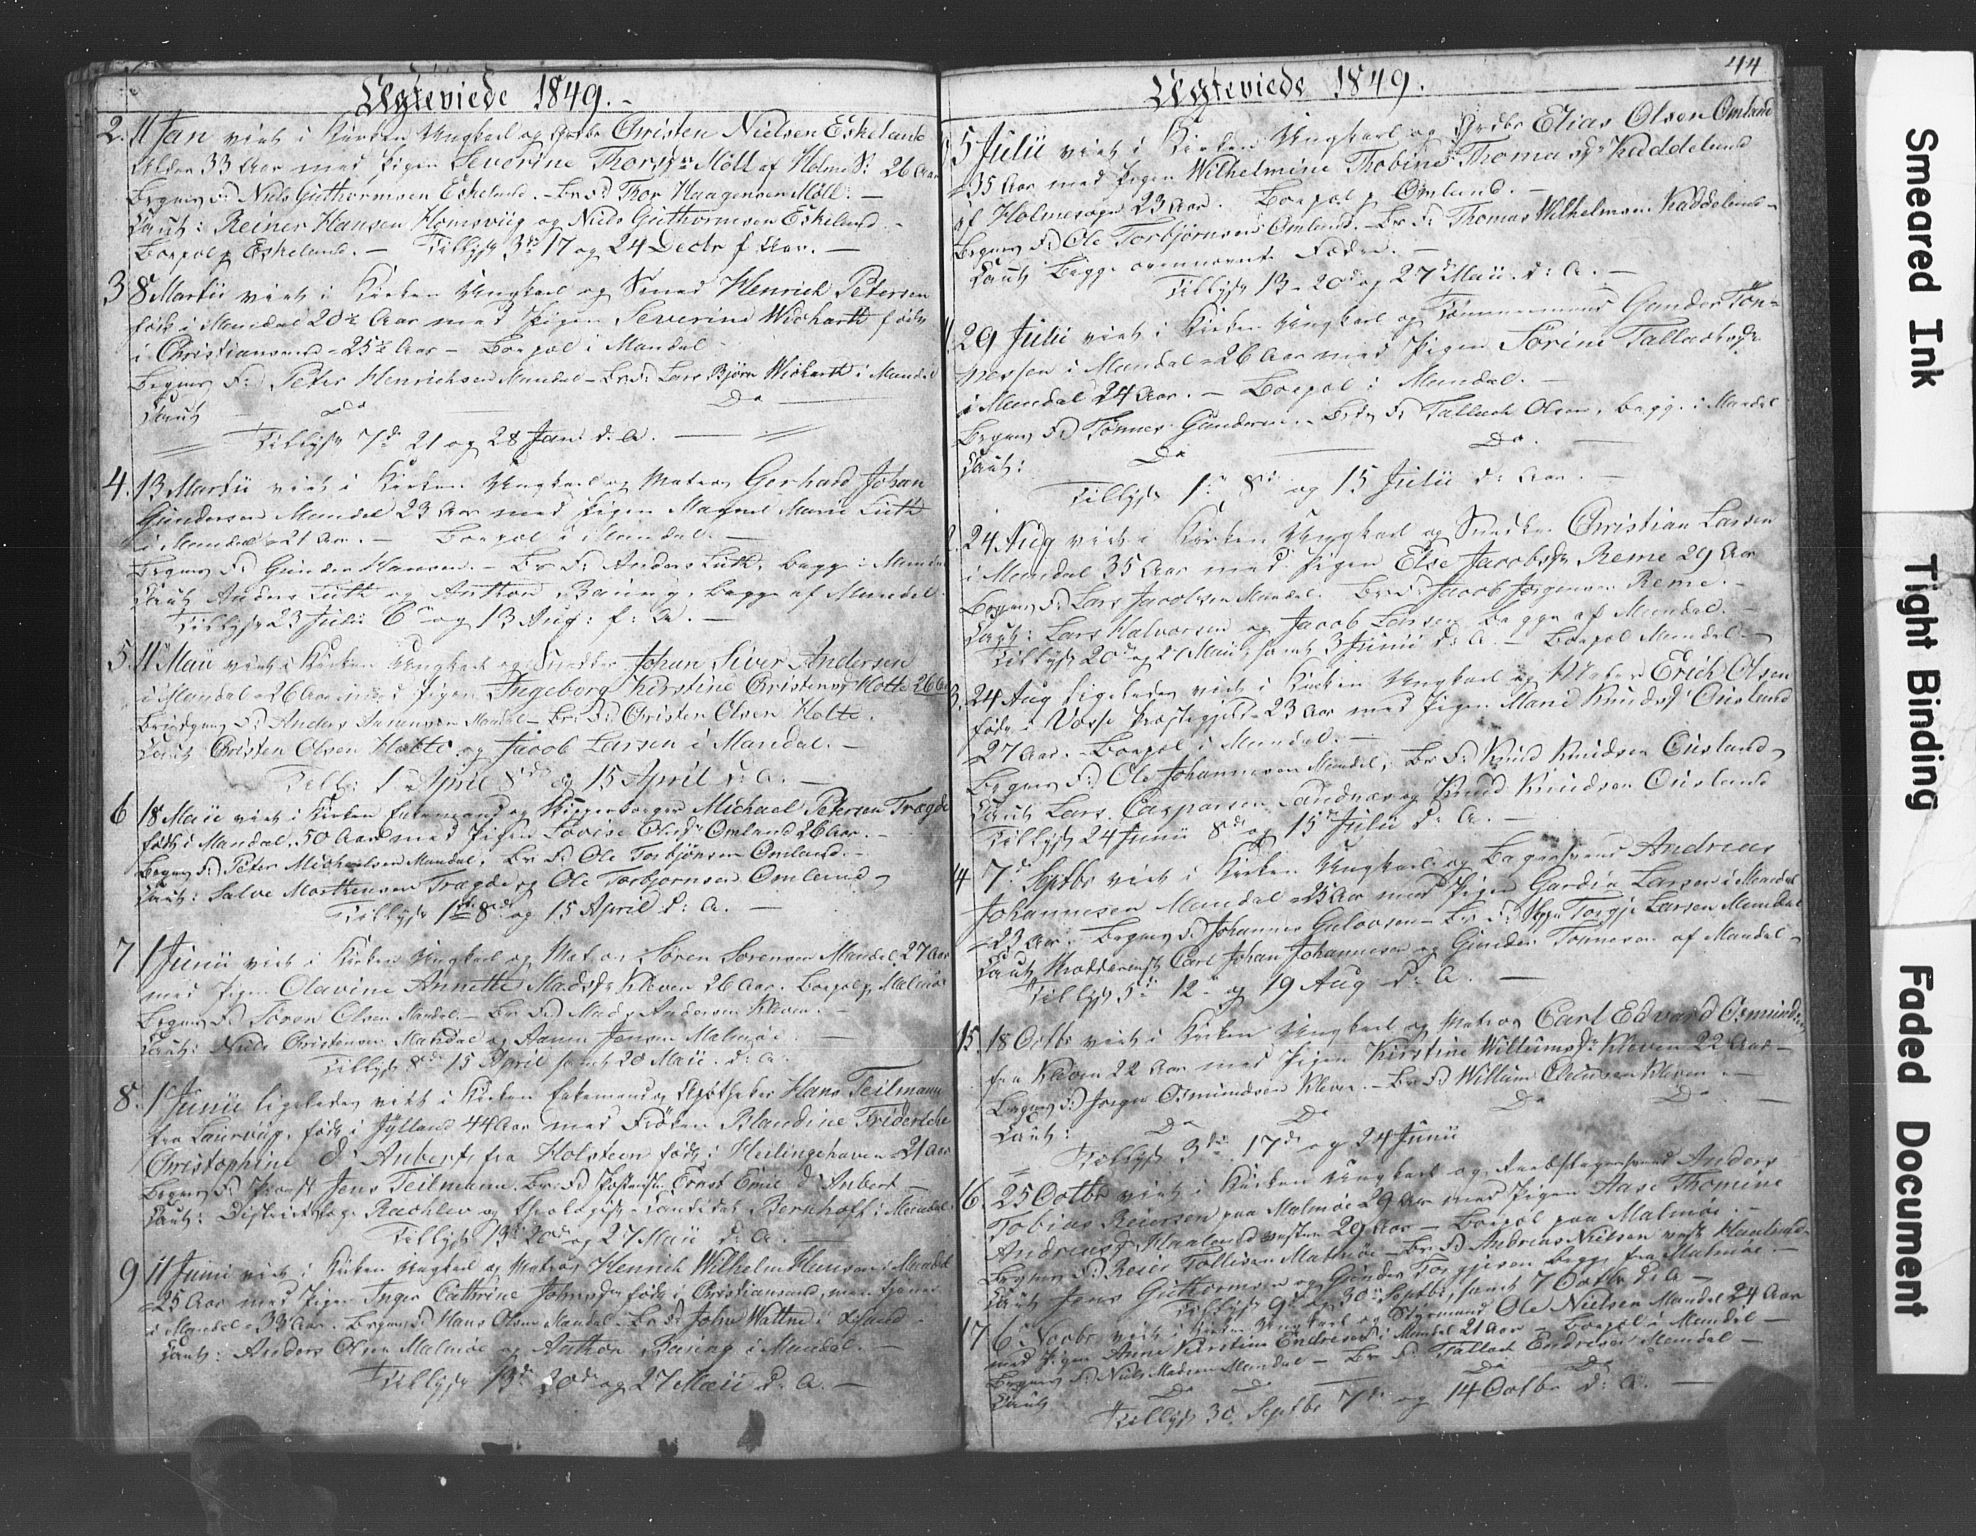 Egteviede 1849.
2. 11 Jan viet i Kirken Ungkarl og Christen Nielsen Eskeland
Alder 33 Aar med Pigen Severine Thorsdr Möll af Holme S: 26 Aar
Begms F: Niels Guthormsen Eskeland - Br: F: Thor Haagensen Möll. -
Caut: Reiner Hansen Homsviig og Niels Guthormsen Eskeland. -
Boepæl p Eskeland. - Tillyst 3de 17 og 24 Decbr f. Aar. -
3 8 Martii viet i Kirken Ungkarl og Smed Henrich Petersen
født i Mandal 20½ Aar med Pigen Severine Wichardt født
i Christiansand - 25½ Aar - Boepæl i Mandal -
Begms F: Peter Henrichsen Mandal - Br: F: Lars Björn Wichardt i Mandal
Caut Do Do
Tillyst 7de 21 og 28 Jan: d: A. -
4. 13 Martii viet i Kirken Ungkarl og Matros Gerhard Johan
Gundersen Mandal 23 Aar med Pigen Marie Luth
i Mandal 21 Aar. - Boepæl i Mandal. -
Begms F: Gunder Hansen. - Br: F: Anders Luth, begge i Mandal
Caut Anders Luth og Anthon Baning, begge af Mandal.
Tillyst 23 Julii 6te og 13 Aug: f: A. -
5. 11 Maii viet i Kirken Ungkarl og Snedker Johan Siver Andersen
i Mandal - 26 Aar med Pigen Ingeborg Kirstine Christensdr Holte 26 Aar
Brudgms F: Anders Mandal - Br: F: Christen Olsen Holte.
Caut Christen Olsen Holte og Jacob Larsen i Mandal. -
Till: 1 April 8de og 15 April d: A. -
6 18 Maii viet i Kirken Enkemand og Michael Petersen Trægde
født i Mandal. 50 Aar med Pigen Lovise Olsdr Omland 26 Aar. -
Begms F: Peter Michaelsen Mandal, Br F: Ole Torbjönsen Omland. -
Caut: Salve Morthensen Trægde og Ole Torbjornsen Omland -
Tillyst 1ste 8de og 15 April d: A. -
7 1 Junii viet i Kirken Ungkarl og Matros Sören Sörensen Mandal 27 Aar
med Pigen Olavine Annette Madsdr Kleven 26 Aar. Boepæl p Malmöe
Begms F: Sören Olsen Mandal. - Br F: Mads Andersen Kleven. -
Caut: Niels Christensen Mandal og Aanen Jensen Malmöe. -
Tillyst 8de 15 April samt 20 Maii. d: A. -
8. 1 Junii ligeledes viet i Kirken Enkemand og Apotheker Hans Teilmann
fra Laurvig, født i Jylland 44 Aar med Fröken Blandine Frideriche
Christophine d' Aubert, fra Holsteen født i Heilingehaven 21 Aar
Begms F: Provst Jens Teilmann. Br: F: Ernst Emil d' Aubert -
Caut: Districtslæge Rachlev og Theologisk Candidat Bernhoft i Mandal.
Tillyst 13de 20de og 27 Maii d: A. -
9 11 Junii viet i Kirken Ungkarl og Matros Henrich Wilhelm Hansen i Mandal
25 Aar med Pigen Inger Cathrine Johnsdr født i Christiansand, men tjener
i Mandal - 33 Aar. Begms F: Hans Olsen Mandal - Br: F: John Wattne i
Caut: Anders Olsen Malmöe og Anthon Baning i Mandal. -
Tillyst 13de 20de og 27 Maii d. A. -
44
Egteviede 1849.
5 Julii viet i Kirken Ungkarl og Elias Olsen Omland
35 Aar med Pigen Wilhelmine Thobine Thomasdr Kaddeland
af Holmesogn 23 Aar. Boepæl p Omland. -
Begms F: Ole Torbjörnsen Omland. - Br F: Thomas Wilhelmsen Kaddeland -
Caut Begge ovennævnte Fædre. -
Tillyst 13 - 20de og 27de Maii. d: A. -
29 Julii viet i Kirken Ungkarl og Tömmermand Gunder Tön-
nessen i Mandal - 26 Aar med Pigen Sörine Tallachsdr
i Mandal 24 Aar. - Boepæl i Mandal. -
Begms F: Tönnes Gundersen. - Brds F: Tallach Olsen, begge i Mandal
Caut: Do Do
Tillyst 1ste 8de og 15 Julii d: Aar. -
24 Aug viet i Kirken Ungkarl og Snedker Christian Larsen
i Mandal 35 Aar med Pigen Else Jacobsdr Reme 29 Aar
Begms F: Lars Jacobsen Mandal. Br: F: Jacob Jörgensen Reme. -
Caut: Lars Halvorsen og Jacob Larsen begge af Mandal. -
Tillyst 20de og 27 Maii, samt 3 Junii d: A. - Boepæl Mandal. -
24 Aug ligeledes viet i Kirken Ungkarl og Erich Olsen
født i Vosse Præstegjeld - 23 Aar med Pigen Marie Knudsdr Ousland
27 Aar. - Boepæl i Mandal. -
Begms F: Ole Johannesen Mandal, Br F: Knud Knudsen Ousland -
Caut Lars Casparsen Sandnæs og Knud Knudsen Ousland
Tillyst 24 Junii 8de og 15de Julii d: A. -
4 7de Septbr viet i Kirken Ungkarl og Bagersvend Andreas
Johannesen Mandal 25 Aar med Pigen Gardia Larsen i Mandal
- 23 Aar. Begms F: Johannes Gulovsen - Br F: Torgje Larsen Mandal
Caut Carl Johan Johannesen og Gunder Tönnesen af Mandal -
Tillyst 5te 12te og 19 Aug d: A. -
15. 18 Octbr viet i Kirken Ungkarl og Matros Carl Edvard Osmundsen
fra Kleven 22 Aar med Pigen Kirstine Willumsdr Kleven 22 Aar -
Begms F: Jörgen Osmundsen Kleven. - Br F: Willum Clausen Kleven. -
Caut: Do Do Do Do
Tillyst 3de 17de og 24 Junii
16. 25 Octbr viet i Kirken Ungkarl og Anders
Tobias Reiersen paa Malmöe 29 Aar med Pigen Aase Thomine
Andreasdr Haaland vesten 29 Aar - Boepæl paa Malmöe. -
Begms F: Reier Tollisen Malmöe - Br F: Andreas Nielsen vest Haaland -
Caut Jens Guttormsen og Gunder Torgjesen begge fra Malmöe. -
Tillyst 9de og 30 Septbr, samt 7 Octbr d: A -
17 6 Novbr viet i Kirken Ungkarl og Styrmand Ole Nielsen Mandal 24 Aar
med Pigen Anne Kirstine Endresen i Mandal 21 Aar - Boepæl i Mandal -
Begms F: Niels Madsen Mandal - Br F: Tallach Endresen Mandal -
Caut Do Do Do Do
Tillyst 30 Septbr 7de og 14 Octbr d: A. -
Smeared Ink
Tight Binding
Faded Document